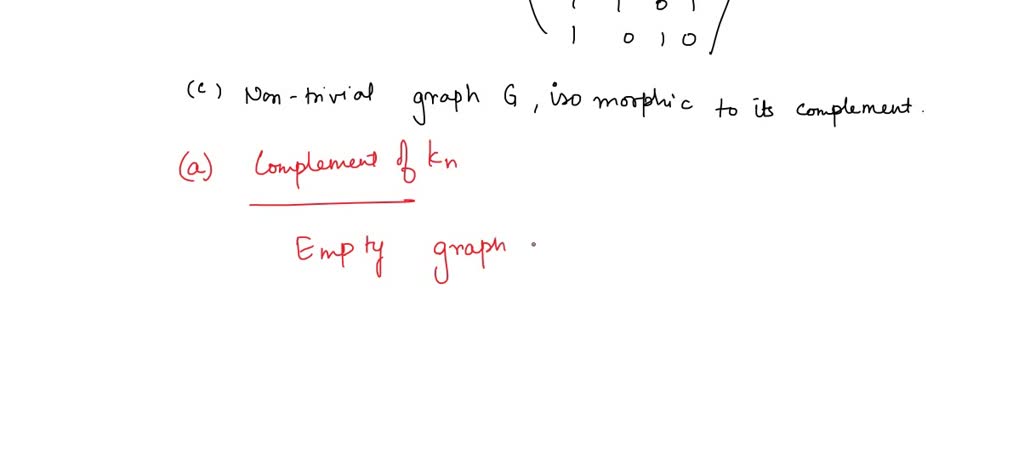 1 1 0 1
1 0 1 0
(c) Non-trivial graph G, isomorphic to its complement.
(a) Complement of kn
Empty graph